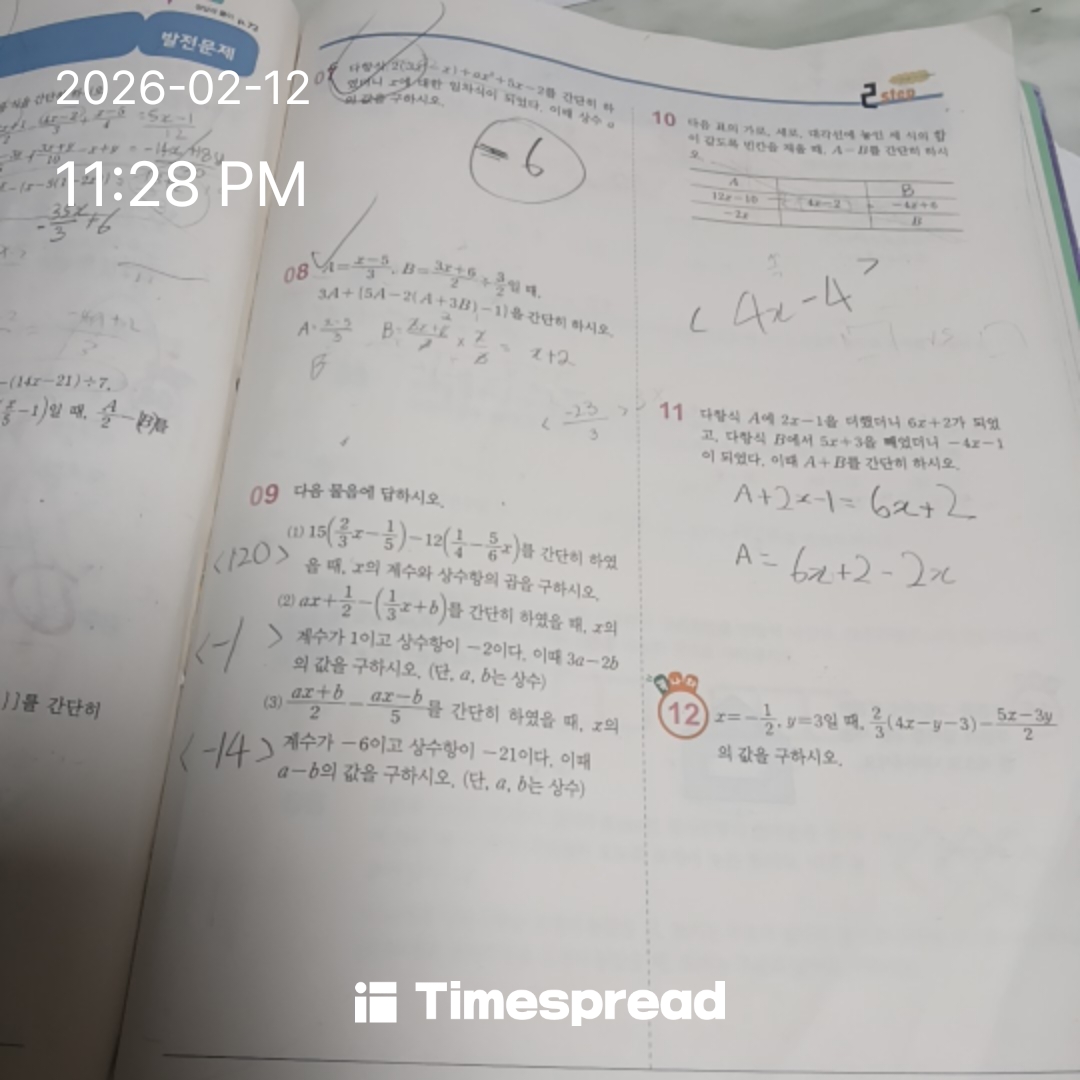 발전문제
2026-02-12
11:28 PM
-35x/3 +6
-(14x-21)÷7,
일 때, A/2 -(B)를
}]를 간단히
2 step
07 다항식 +ax²+5x-2를 간단히 하
였더니 x에 대한 일차식이 되었다. 이때 상수 a
의 값을 구하시오.
-6
08 A=(x-5)/3, B=(3x+6)/2÷3/2일 때,
3A+{5A-2(A+3B)-1}을 간단히 하시오.
A=(x-5)/3
= x+2
B
< -23/3 >
09 다음 물음에 답하시오.
(1) 15(2/3x-1/5)-12(1/4-5/6x)를 간단히 하였
을 때, x의 계수와 상수항의 곱을 구하시오.
<120>
(2) ax+1/2-(1/3x+b)를 간단히 하였을 때, x의
계수가 1이고 상수항이 -2이다. 이때 3a-2b
의 값을 구하시오. (단, a, b는 상수)
<-1>
(3) (ax+b)/2-(ax-b)/5를 간단히 하였을 때, x의
계수가 -6이고 상수항이 -21이다. 이때
a-b의 값을 구하시오. (단, a, b는 상수)
<-14>
10 다음 표의 가로, 세로, 대각선에 놓인 세 식의 합
이 같도록 빈칸을 채울 때, A-B를 간단히 하시
오.
A B
12x-10 4x-2 -4x+6
-2x B
<4x-4>
11 다항식 A에 2x-1을 더했더니 6x+2가 되었
고, 다항식 B에서 5x+3을 빼었더니 -4x-1
이 되었다. 이때 A+B를 간단히 하시오.
A+2x-1=6x+2
A=6x+2-2x
12 x=-1/2, y=3일 때, 2/3(4x-y-3)-(5x-3y)/2
의 값을 구하시오.
Timespread